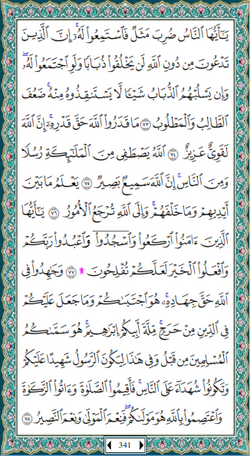 يَـٰٓأَيُّهَا ٱلنَّاسُ ضُرِبَ مَثَلٌ فَٱسْتَمِعُوا۟ لَهُۥٓ ۚ إِنَّ ٱلَّذِينَ
تَدْعُونَ مِن دُونِ ٱللَّهِ لَن يَخْلُقُوا۟ ذُبَابًا وَلَوِ ٱجْتَمَعُوا۟ لَهُۥ ۖ
وَإِن يَسْلُبْهُمُ ٱلذُّبَابُ شَيْـًٔا لَّا يَسْتَنقِذُوهُ مِنْهُ ۚ ضَعُفَ
ٱلطَّالِبُ وَٱلْمَطْلُوبُ ٧٣ مَا قَدَرُوا۟ ٱللَّهَ حَقَّ قَدْرِهِۦٓ ۗ إِنَّ ٱللَّهَ
لَقَوِىٌّ عَزِيزٌ ٧٤ ٱللَّهُ يَصْطَفِى مِنَ ٱلْمَلَـٰٓئِكَةِ رُسُلًا
وَمِنَ ٱلنَّاسِ ۚ إِنَّ ٱللَّهَ سَمِيعٌۢ بَصِيرٌ ٧٥ يَعْلَمُ مَا بَيْنَ
أَيْدِيهِمْ وَمَا خَلْفَهُمْ ۗ وَإِلَى ٱللَّهِ تُرْجَعُ ٱلْأُمُورُ ٧٦ يَـٰٓأَيُّهَا
ٱلَّذِينَ ءَامَنُوا۟ ٱرْكَعُوا۟ وَٱسْجُدُوا۟ وَٱعْبُدُوا۟ رَبَّكُمْ
وَٱفْعَلُوا۟ ٱلْخَيْرَ لَعَلَّكُمْ تُفْلِحُونَ ۩ ٧٧ وَجَـٰهِدُوا۟ فِى
ٱللَّهِ حَقَّ جِهَادِهِۦ ۚ هُوَ ٱجْتَبَىٰكُمْ وَمَا جَعَلَ عَلَيْكُمْ
فِى ٱلدِّينِ مِنْ حَرَجٍ ۚ مِّلَّةَ أَبِيكُمْ إِبْرَٰهِيمَ ۚ هُوَ سَمَّىٰكُمُ
ٱلْمُسْلِمِينَ مِن قَبْلُ وَفِى هَـٰذَا لِيَكُونَ ٱلرَّسُولُ شَهِيدًا عَلَيْكُمْ
وَتَكُونُوا۟ شُهَدَآءَ عَلَى ٱلنَّاسِ ۚ فَأَقِيمُوا۟ ٱلصَّلَوٰةَ وَءَاتُوا۟ ٱلزَّكَوٰةَ
وَٱعْتَصِمُوا۟ بِٱللَّهِ هُوَ مَوْلَىٰكُمْ ۖ فَنِعْمَ ٱلْمَوْلَىٰ وَنِعْمَ ٱلنَّصِيرُ ٧٨
341